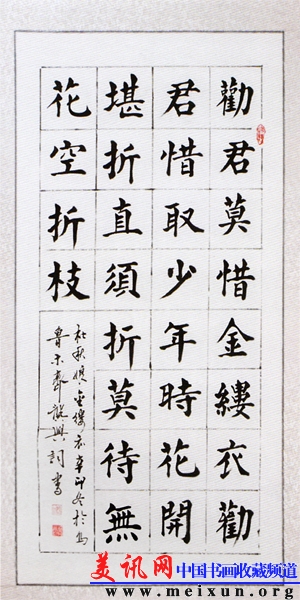 勸君莫惜金縷衣勸
君惜取少年時花開
堪折直須折莫待無
花空折枝
杜秋娘金缕衣辛卯冬於烏
魯木齊興書
美讯网 中国书画收藏频道
www.meixun.org